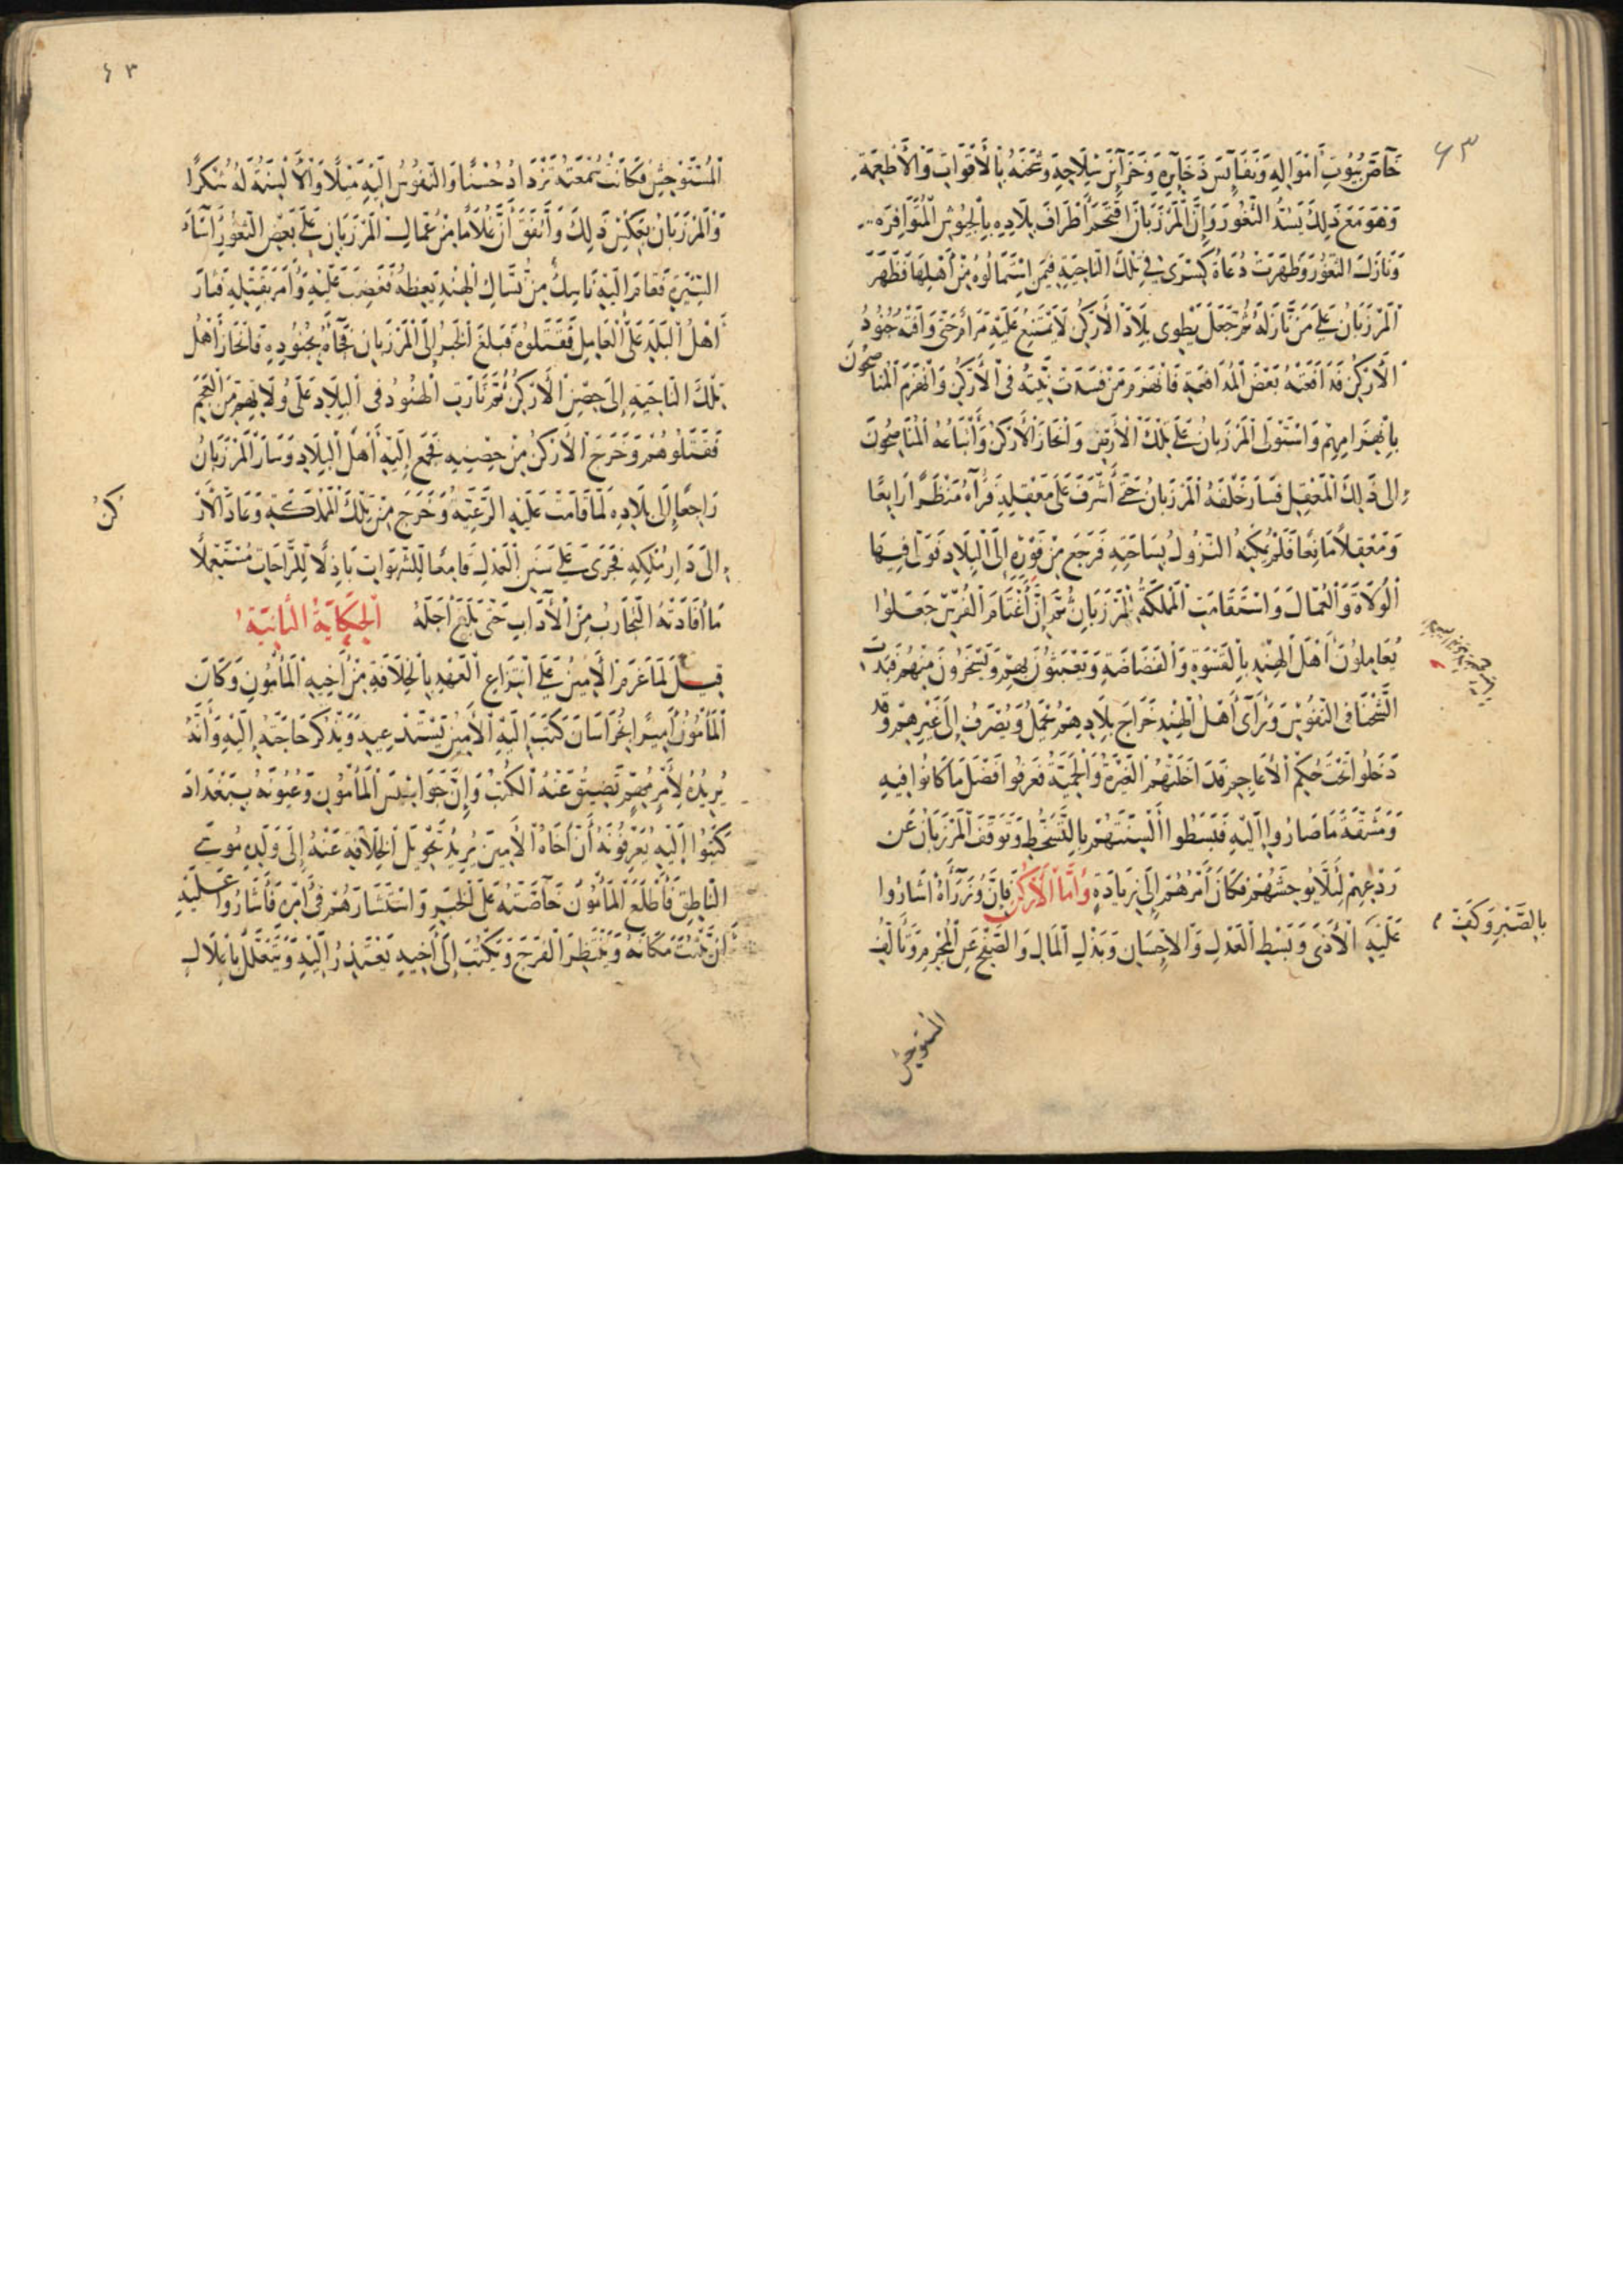 ٤٣
خَاصَّ بُيُوتِ أَمْوَالِهِ وَنَفَائِسَ ذَخَايِرِهِ وَخَزَائِنَ سِلَاحِهِ وَشَحَنَهُ بِالْأَقْوَاتِ وَالْأَطْعِمَةِ
وَهُوَ مَعَ ذَلِكَ يَسُدُّ الثُّغُورَ وَإِنَّ الْمَرْزَبَانَ اقْتَحَمَ أَطْرَافَ بِلَادِهِ بِالْجُيُوشِ الْمُتَوَافِرَةِ
وَنَازَلَ الثُّغُورَ وَظَهَرَتْ دُعَاةُ كِسْرَى فِي تِلْكَ النَّاحِيَةِ فِيمَنِ اسْتَمَالُوهُ مِنْ أَهْلِهَا فَظَهَرَ
الْمَرْزَبَانُ عَلَى مَنْ نَازَلَهُ ثُمَّ جَعَلَ يَطْوِي بِلَادَ الْأَرْكَنِ لَا يَمْتَنِعُ عَلَيْهِ مَرَامٌ حَتَّى وَافَتْهُ جُنُودُ
الْأَرْكَنِ فَدَافَعَتْهُ بَعْضَ الْمُدَافَعَةِ فَانْهَزَمَ مَنْ فَسَدَتْ نِيَّتُهُ فِي الْأَرْكَنِ وَانْهَزَمَ الْمُنَاصِحُونَ
بِانْهِزَامِهِمْ وَاسْتَوْلَى الْمَرْزَبَانُ عَلَى تِلْكَ الْأَرْضِ وَانْحَازَ الْأَرْكَنُ وَأَتْبَاعُهُ الْمُنَاصِحُونَ
إِلَى ذَلِكَ الْمَعْقِلِ فَسَارَ خَلْفَهُ الْمَرْزَبَانُ حَتَّى أَشْرَفَ عَلَى مَعْقِلِهِ فَرَآهُ مَنْظَرًا رَايِعًا
وَمَعْقِلًا مَانِعًا فَلَمْ يُمْكِنْهُ النُّزُولُ بِسَاحَتِهِ فَرَجَعَ مِنْ فَوْرِهِ إِلَى الْبِلَادِ فَوَلَّى فِيهَا
الْوُلَاةَ وَالْعُمَّالَ وَاسْتَقَامَتِ الْمَمْلَكَةُ لِلْمَرْزَبَانِ ثُمَّ إِنَّ أَغْتَامَ الْفُرْسِ جَعَلُوا
يُعَامِلُونَ أَهْلَ الْهِنْدِ بِالْقَسْوَةِ وَالْفَضَاضَةِ وَيَعْبَثُونَ بِهِمْ وَيَسْخَرُونَ مِنْهُمْ فَبَدَتِ
الشَّحْنَا فِي النُّفُوسِ وَرَأَى أَهْلُ الْهِنْدِ خَرَاجَ بِلَادِهِمْ يُحْمَلُ وَيُصْرَفُ إِلَى غَيْرِهِمْ وَقَدْ
دَخَلُوا تَحْتَ حُكْمِ الْأَعَاجِمِ قَدْ أَخَذَتْهُمُ الْغَيْرَةُ وَالْحَمِيَّةُ فَعَرَفُوا فَضْلَ مَا كَانُوا فِيهِ
وَمَشَقَّةَ مَا صَارُوا إِلَيْهِ فَبَسَطُوا أَلْسِنَتَهُمْ بِالتَّسَخُّطِ وَتَوَقَّفَ الْمَرْزَبَانُ عَنْ
رَدْعِهِمْ لِئَلَّا يُوحِشَهُمْ فَكَانَ أَمْرُهُمْ إِلَى زِيَادَةٍ وَأَمَّا الْأَرْكَنُ فَإِنَّ وُزَرَاءَهُ أَشَارُوا
عَلَيْهِ بِالصَّبْرِ وَكَفِّ الْأَذَى وَبَسْطِ الْعَدْلِ وَالْإِحْسَانِ وَبَذْلِ الْمَالِ وَالصَّفْحِ عَنِ الْمُجْرِمِ وَتَأَلُّفِ
المستوحش
٤٣
الْمُسْتَوْحِشِ فَكَانَتْ سُمْعَتُهُ تَزْدَادُ حُسْنًا وَالنُّفُوسُ إِلَيْهِ مَيْلًا وَالْأَلْسِنَةُ لَهُ شُكْرًا
وَالْمَرْزَبَانُ بِعَكْسِ ذَلِكَ وَاتَّفَقَ أَنَّ غُلَامًا مِنْ عُمَّالِ الْمَرْزَبَانِ عَلَى بَعْضِ الثُّغُورِ أَسَاءَ
السِّيرَةَ فَقَامَ إِلَيْهِ نَاسِكٌ مِنْ نُسَّاكِ الْهِنْدِ يَعِظُهُ فَغَضِبَ عَلَيْهِ وَأَمَرَ بِقَتْلِهِ فَثَارَ
أَهْلُ الْبَلَدِ عَلَى الْعَامِلِ فَقَتَلُوهُ فَبَلَغَ الْخَبَرُ إِلَى الْمَرْزَبَانِ فَجَاءَهُ بِجُنُودِهِ فَانْحَازَ أَهْلُ
تِلْكَ النَّاحِيَةِ إِلَى حِصْنِ الْأَرْكَنِ ثُمَّ ثَارَتِ الْهُنُودُ فِي الْبِلَادِ عَلَى وُلَاتِهِمْ مِنَ الْعَجَمِ
فَقَتَلُوهُمْ وَخَرَجَ الْأَرْكَنُ مِنْ حِصْنِهِ فَجَمَعَ إِلَيْهِ أَهْلَ الْبِلَادِ وَسَارَ الْمَرْزَبَانُ
رَاجِعًا إِلَى بِلَادِهِ لَمَّا قَامَتْ عَلَيْهِ الرَّعِيَّةُ وَخَرَجَ مِنْ تِلْكَ الْمَمْلَكَةِ وَعَادَ الْأَرْ
كَنُ
إِلَى دَارِ مُلْكِهِ فَجَرَى عَلَى سَنَنِ الْعَدْلِ قَامِعًا لِلشَّهَوَاتِ بَاذِلًا لِلرَّاحَاتِ مُسْتَعْمِلًا
مَا أَفَادَتْهُ التَّجَارِبُ مِنَ الْآدَابِ حَتَّى بَلَغَ أَجَلَهُ الْحِكَايَةُ الثَّانِيَةُ
قِيلَ لَمَّا عَزَمَ الْأَمِينُ عَلَى انْتِزَاعِ الْعَهْدِ بِالْخِلَافَةِ مِنْ أَخِيهِ الْمَأْمُونِ وَكَانَ
الْمَأْمُونُ أَمِيرًا بِخُرَاسَانَ كَتَبَ إِلَيْهِ الْأَمِينُ يَسْتَدْعِيهِ وَيَذْكُرُ حَاجَتَهُ إِلَيْهِ وَأَنَّهُ
يُرِيدُهُ لِأَمْرٍ مُهِمٍّ تَضِيقُ عَنْهُ الْكُتُبُ وَإِنَّ جَوَاسِيسَ الْمَأْمُونِ وَعُيُونَهُ بِبَغْدَادَ
كَتَبُوا إِلَيْهِ يُعَرِّفُونَهُ أَنَّ أَخَاهُ الْأَمِينَ يُرِيدُ تَحْوِيلَ الْخِلَافَةِ عَنْهُ إِلَى وَلَدِهِ مُوسَى
النَّاطِقِ فَأَطْلَعَ الْمَأْمُونُ خَاصَّتَهُ عَلَى الْخَبَرِ وَاسْتَشَارَهُمْ فِي أَمْرِهِ فَأَشَارُوا عَلَيْهِ
أَنْ يَثْبُتَ مَكَانَهُ وَيَنْتَظِرَ الْفَرَجَ وَيَكْتُبَ إِلَى أَخِيهِ يَعْتَذِرُ إِلَيْهِ وَيَتَعَلَّلُ بِاعْلَالٍ